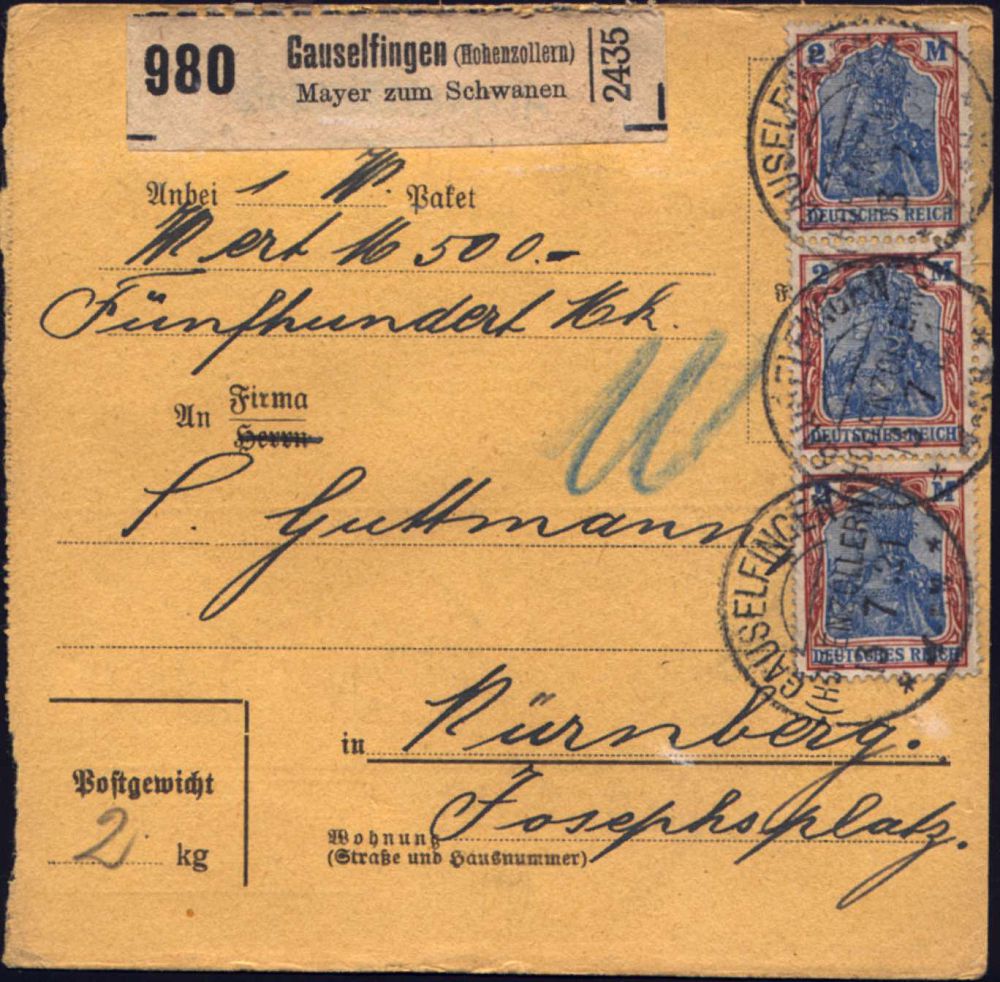 980
Gauselfingen (Hohenzollern)
Mayer zum Schwanen
2435
Anbei 1 W. Paket
Wert M 500.-
Fünfhundert Mk.
An Firma
Herrn
S. Guttmann
in Nürnberg.
Josephsplatz.
Wohnung
(Straße und Hausnummer)
Postgewicht
2 kg
2 M
DEUTSCHES REICH
2 M
DEUTSCHES REICH
2 M
DEUTSCHES REICH
GAUSELFINGEN
(HOHENZOLLERN)